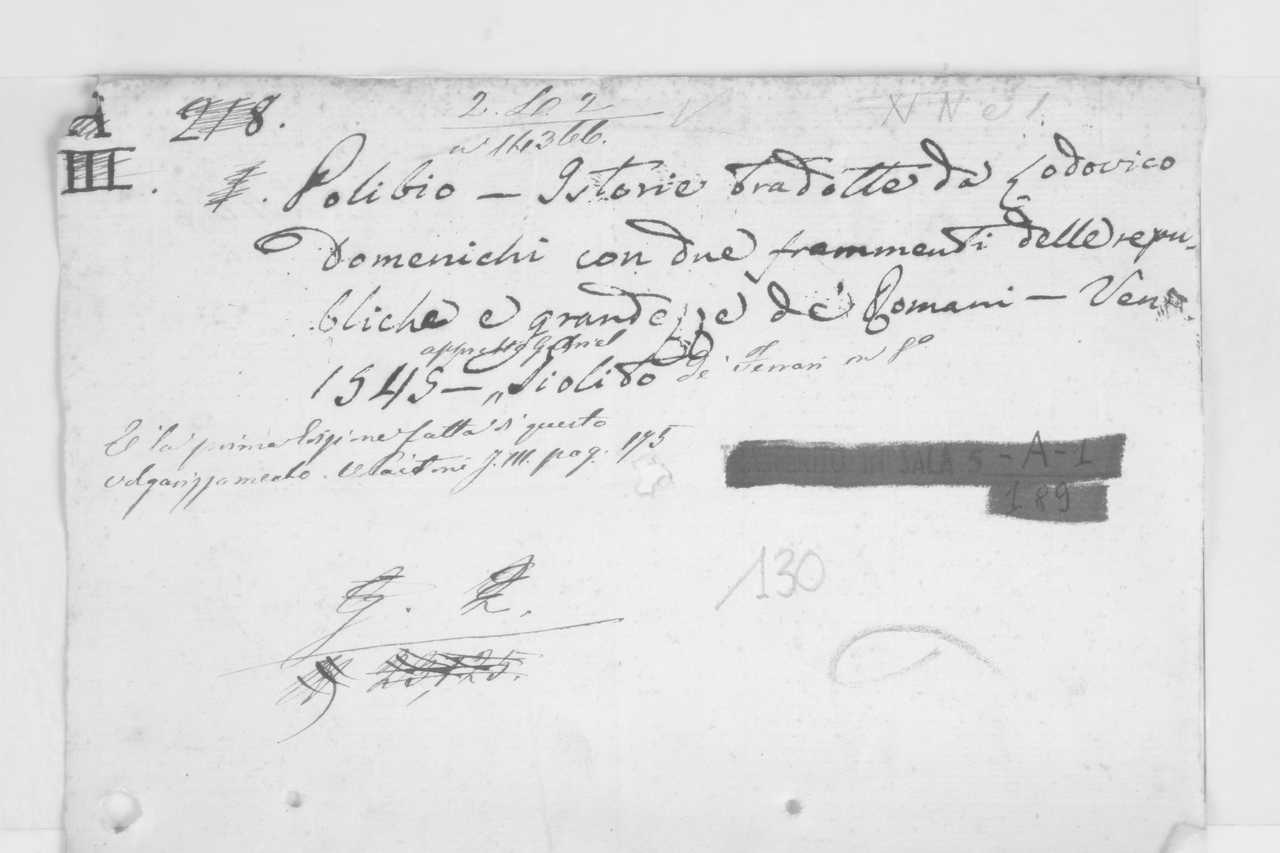 A 218.
III.
2. Lo 2
n 14366.
Polibio — Istorie tradotte da Lodovico
Domenichi con due frammenti delle repu-
bliche e grandezze de' Romani — Ven
appresso Gabriel
1545 — Giolito de' Ferrari in 8º
E la prima edizione fatta di questo
volgarizzamento. Paitoni T. III. pag. 175
TRASFERITO IN SALA 5 - A - 1
189
130